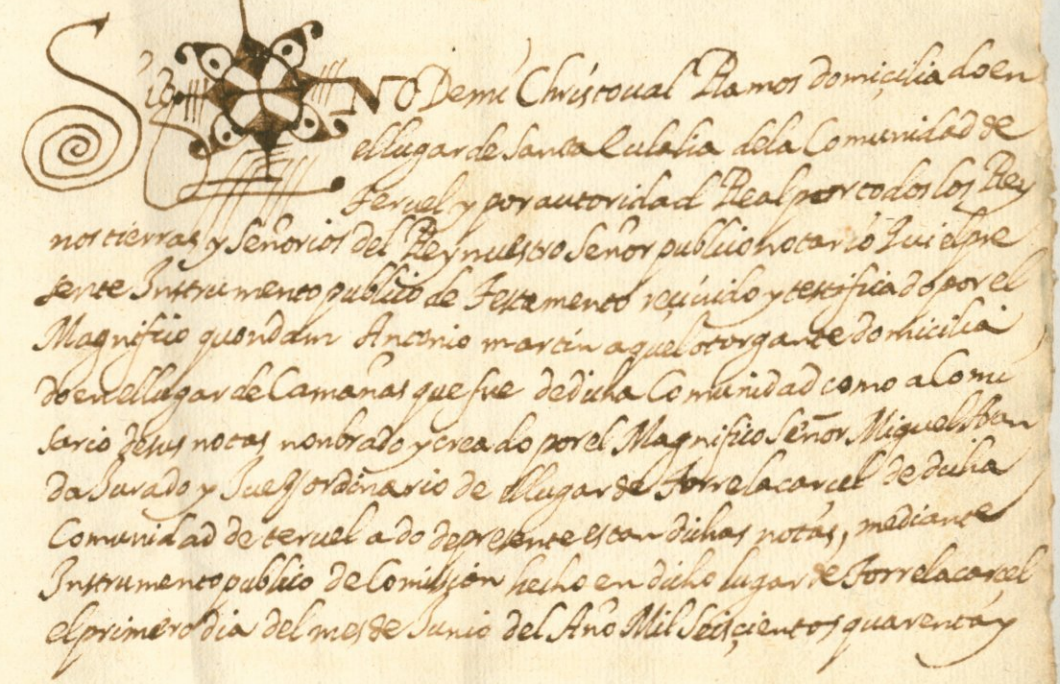 SigNO De mi Christoual Ramos domiçiliado en
el lugar de Santa Eulalia dela Comunidad de
Teruel y por autoridad Real por todos los Rey
nos tierras y Señorios del Rey nuestro Señor publico notario qui el pre
sente Instrumento publico de Testamento reçiuido y testificado por el
Magnifico quondam Antonio martin aquel otorgante domicilia
do en el lugar de Camañas que fue de dicha Comunidad como a Comi
sario de sus notas nonbrado y creado por el Magnifico Señor Miguel
da Jurado y Juez ordinario de el lugar de Torrelacarcel de dicha
Comunidad de teruel a do de presente estan dichas notas, mediante
Instrumento publico de Comission hecho en dicho lugar de Torrelacarcel
el primero dia del mes de Junio del Año Mil Seisçientos quarenta y